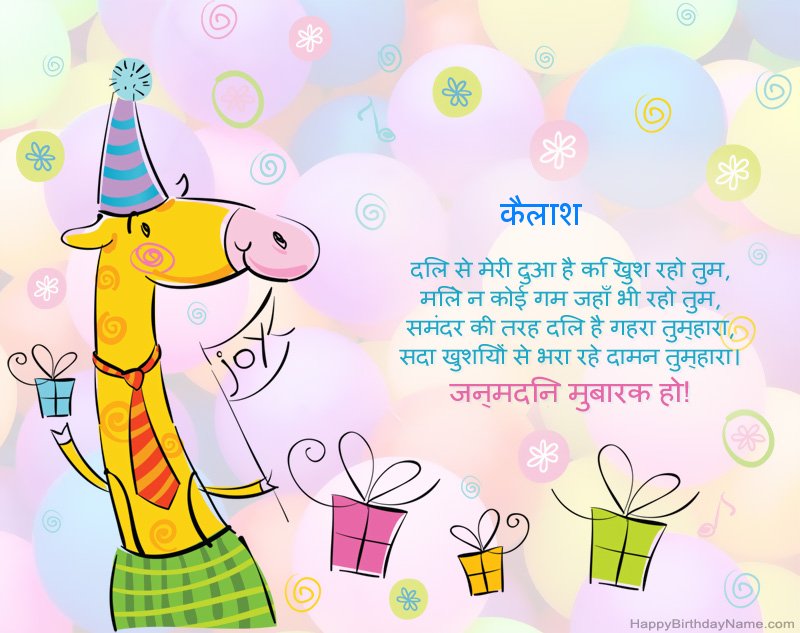 कैलाश
दिल से मेरी दुआ है कि खुश रहो तुम,
मिले न कोई गम जहाँ भी रहो तुम,
समंदर की तरह दिल है गहरा तुम्हारा,
सदा खुशियों से भरा रहे दामन तुम्हारा।
जन्मदिन मुबारक हो!
joy
HappyBirthdayName.com